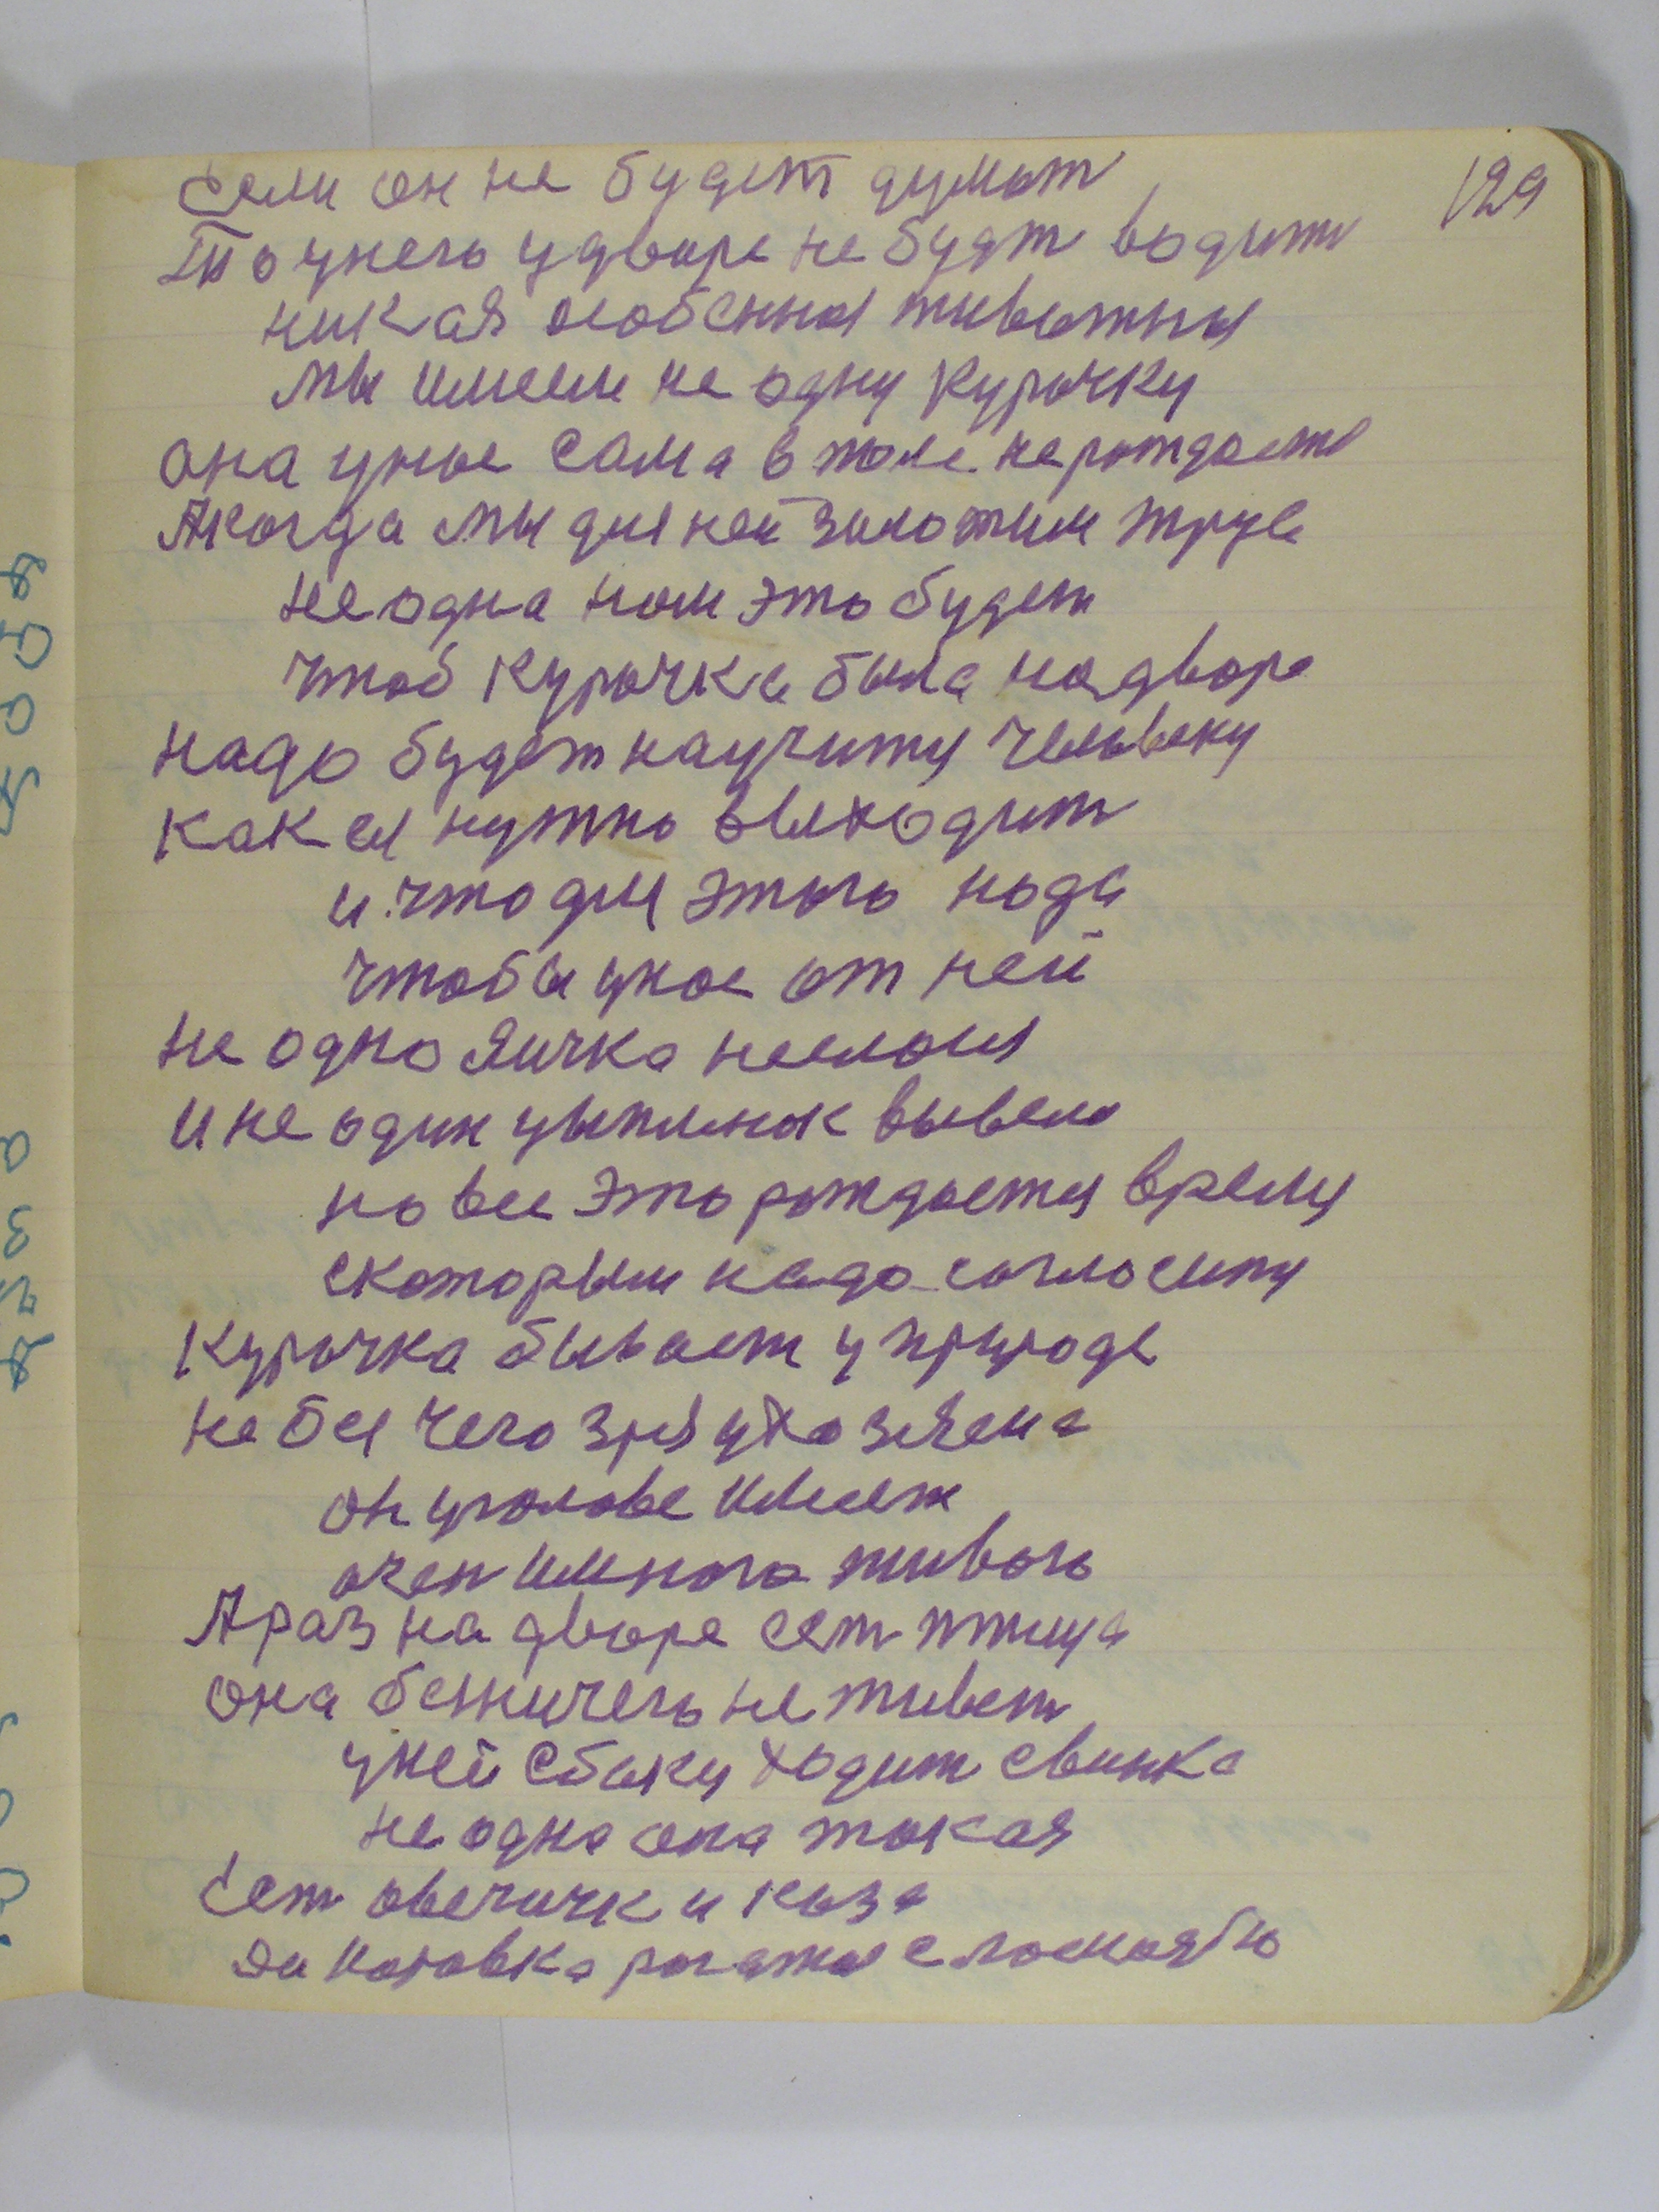 129
Если он не будет думат
То унего удворе не будт водитт
никая особенныя животныя
мы имеем не одну курочку
она унас сама в поле не рождается
Акогда мы для ней заложим труд
не одна нам это будет
чтоб курочка была надворе
надо будет научитя человеку
как ея нужно выходит
и что для этого нада
чтобы унас от ней
не одно яичка неслося
и не один цыпленок вывело
но все это рождается время
скоторым надо согласится
курочка бывает у природе
не бея чего зря ухозяена
он уголове имеет
очен имного живого
А раз на дворе ест птица
она безничего не живет
уней сбоку ходит свинка
не одна она такая
Ест овечичк и коза
да коровка рогатая